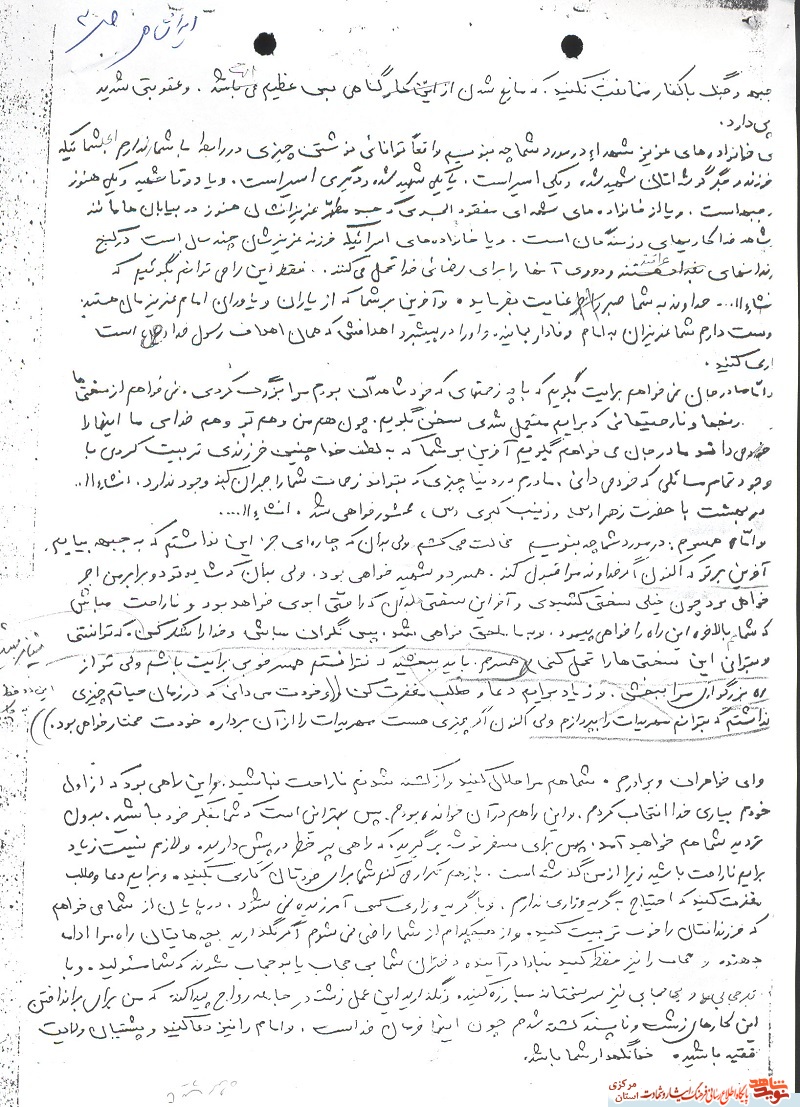 جبهه و جنگ با کفار ممانعت نکنید. که مانع شدن از این کار گناهی بس عظیم می باشد. و عقوبتی شدید
پی دارد.
ی خانواده های عزیز شهداء در مورد شما چه بنویسم واقعاً توانائی نوشتن چیزی در رابطه با شما ندارم
فرزند و جگر گوشه اتان شهید شده و یکی اسیر است. یا یکی شهید شده و دیگری اسیر است. و یا دو تا شهید و یکی هنوز
جبهه است. و یا از خانواده های شهدای مفقود الجسدی که جسد مطهر عزیزانشان هنوز در بیابان ها مانده
شاهد فداکاریهای رزمندگان است. و یا خانواده های اسرائیکه فرزند عزیزشان چند سال است در کنج
زندانهای هستند و دوری آنها را برای رضائی خدا تحمل می کنند. فقط این را می توانم بگوئیم که
خداوند به شما صبر عنایت بفرماید و آفرین بر شما که از یاران و یاوران امام عزیزمان هستید
دوست دارم شما عزیزان به امام وفادار بمانید. و او را در پیشبرد اهدافش که همان اهداف رسول خدا است
اری کنید.
و اما مادر جان نمی خواهم برایت بگویم که با چه زحمتهای که خود شاهد آن بودم مرا بزرگ کردی. نمی خواهم از سختی ها
رنجها و نارحتیهائی که برایم متحمل شدی سخن بگویم. چون هم من و هم تو و هم خدای ما اینها را
مادر جان می خواهم بگویم آفرین بر شما که به لطف خدا چنین فرزندی تربیت کردی با
وجود تمام مسائلی که خود می دانی. مادرم در دنیا چیزی که بتواند زحمات شما را جبران کند وجود ندارد. انشاءا...
در بهشت با حضرت زهرا (س) و زینب کبری (س)، محشور خواهی شد. انشاءا....
و اما همسرم. در مورد شما چه بنویسم خجالت می کشم ولی بدان که چاره ای جز این نداشتم که به جبهه بیایم.
آفرین بر تو که اکنون اگر خداوند مرا قبول کند. همسر دو شهید خواهی بود. ولی بدان که شاید تو دو برابر من اجر
خواهی برد چون خیلی سختی کشیدی و آفرین سختی بدان که راحتی ابدی خواهد بود و ناراحت مباش
که شما بالاخره این راه را خواهی پیمود. و به ما ملحق خواهی شد. پس نگران مباش و خدا را شکر کن. که توانستی
و بتوانی این سختی ها را تحمل کنی همسرم. باید ببخشید که نتوانستم همسر خوبی برایت باشم ولی تو از
راه بزرگواری مرا ببخش. و زیاد برایم دعا و طلب مغفرت کن (( و خودت می دانی که در زمان حیاتم چیزی
نداشتم که بتوانم مهریه ات را بپردازم ولی اکنون اگر چیزی هست مهریه ات را از آن بردار و خودت مختار خواهی بود.))
وای خواهران و برادرم. شما هم مرا حلال کنید و از کشته شدنم ناراحت نباشید. و این راهی بود که از اول
خودم بیاری خدا انتخاب کردم. و این را هم در آن خوانده بودم. پس بهتر این است که شما بفکر خود باشید. بدون
تردید شما هم خواهید آمد. پس برای سفر توشه برگیرید که راهی پر خطر در پیش دارید. و لازم نیست زیاد
برایم ناراحت باشید زیرا از من گذشته است. باز هم تکرار می کنم شما برای خودتان کاری بکنید. و برایم دعا و طلب
مغفرت کنید که احتیاج به گریه و زاری ندارم. و با گریه و زاری کسی آمرزیده نمی شود. در پایان از شما می خواهم
که فرزندانتان را خوب تربیت کنید. و از هیچکدام از شما راضی نمی شوم اگر نگذارید بچه هایتان راه مرا ادامه
دهند و حجاب را نیز حفظ کنید مبادا در آینده دختران شما بی حجاب یا بد حجاب شوند که شما مسئولید. و با
بدحجابی و بی حجابی نیز سرسختانه مبارزه کنید. و نگذارید این عمل زشت در جامعه رواج پیدا کند که من برای برانداختن
این کارهای زشت و ناپسند کشته شدم چون اینها فرمان خداست. و امام را نیز دعا کنید و پشتیبان ولایت
فقیه باشید. خدا نگهدار شما باشد.
نوید شاهد
استان مرکزی
پایگاه اطلاع رسانی فرهنگ ایثار و شهادت